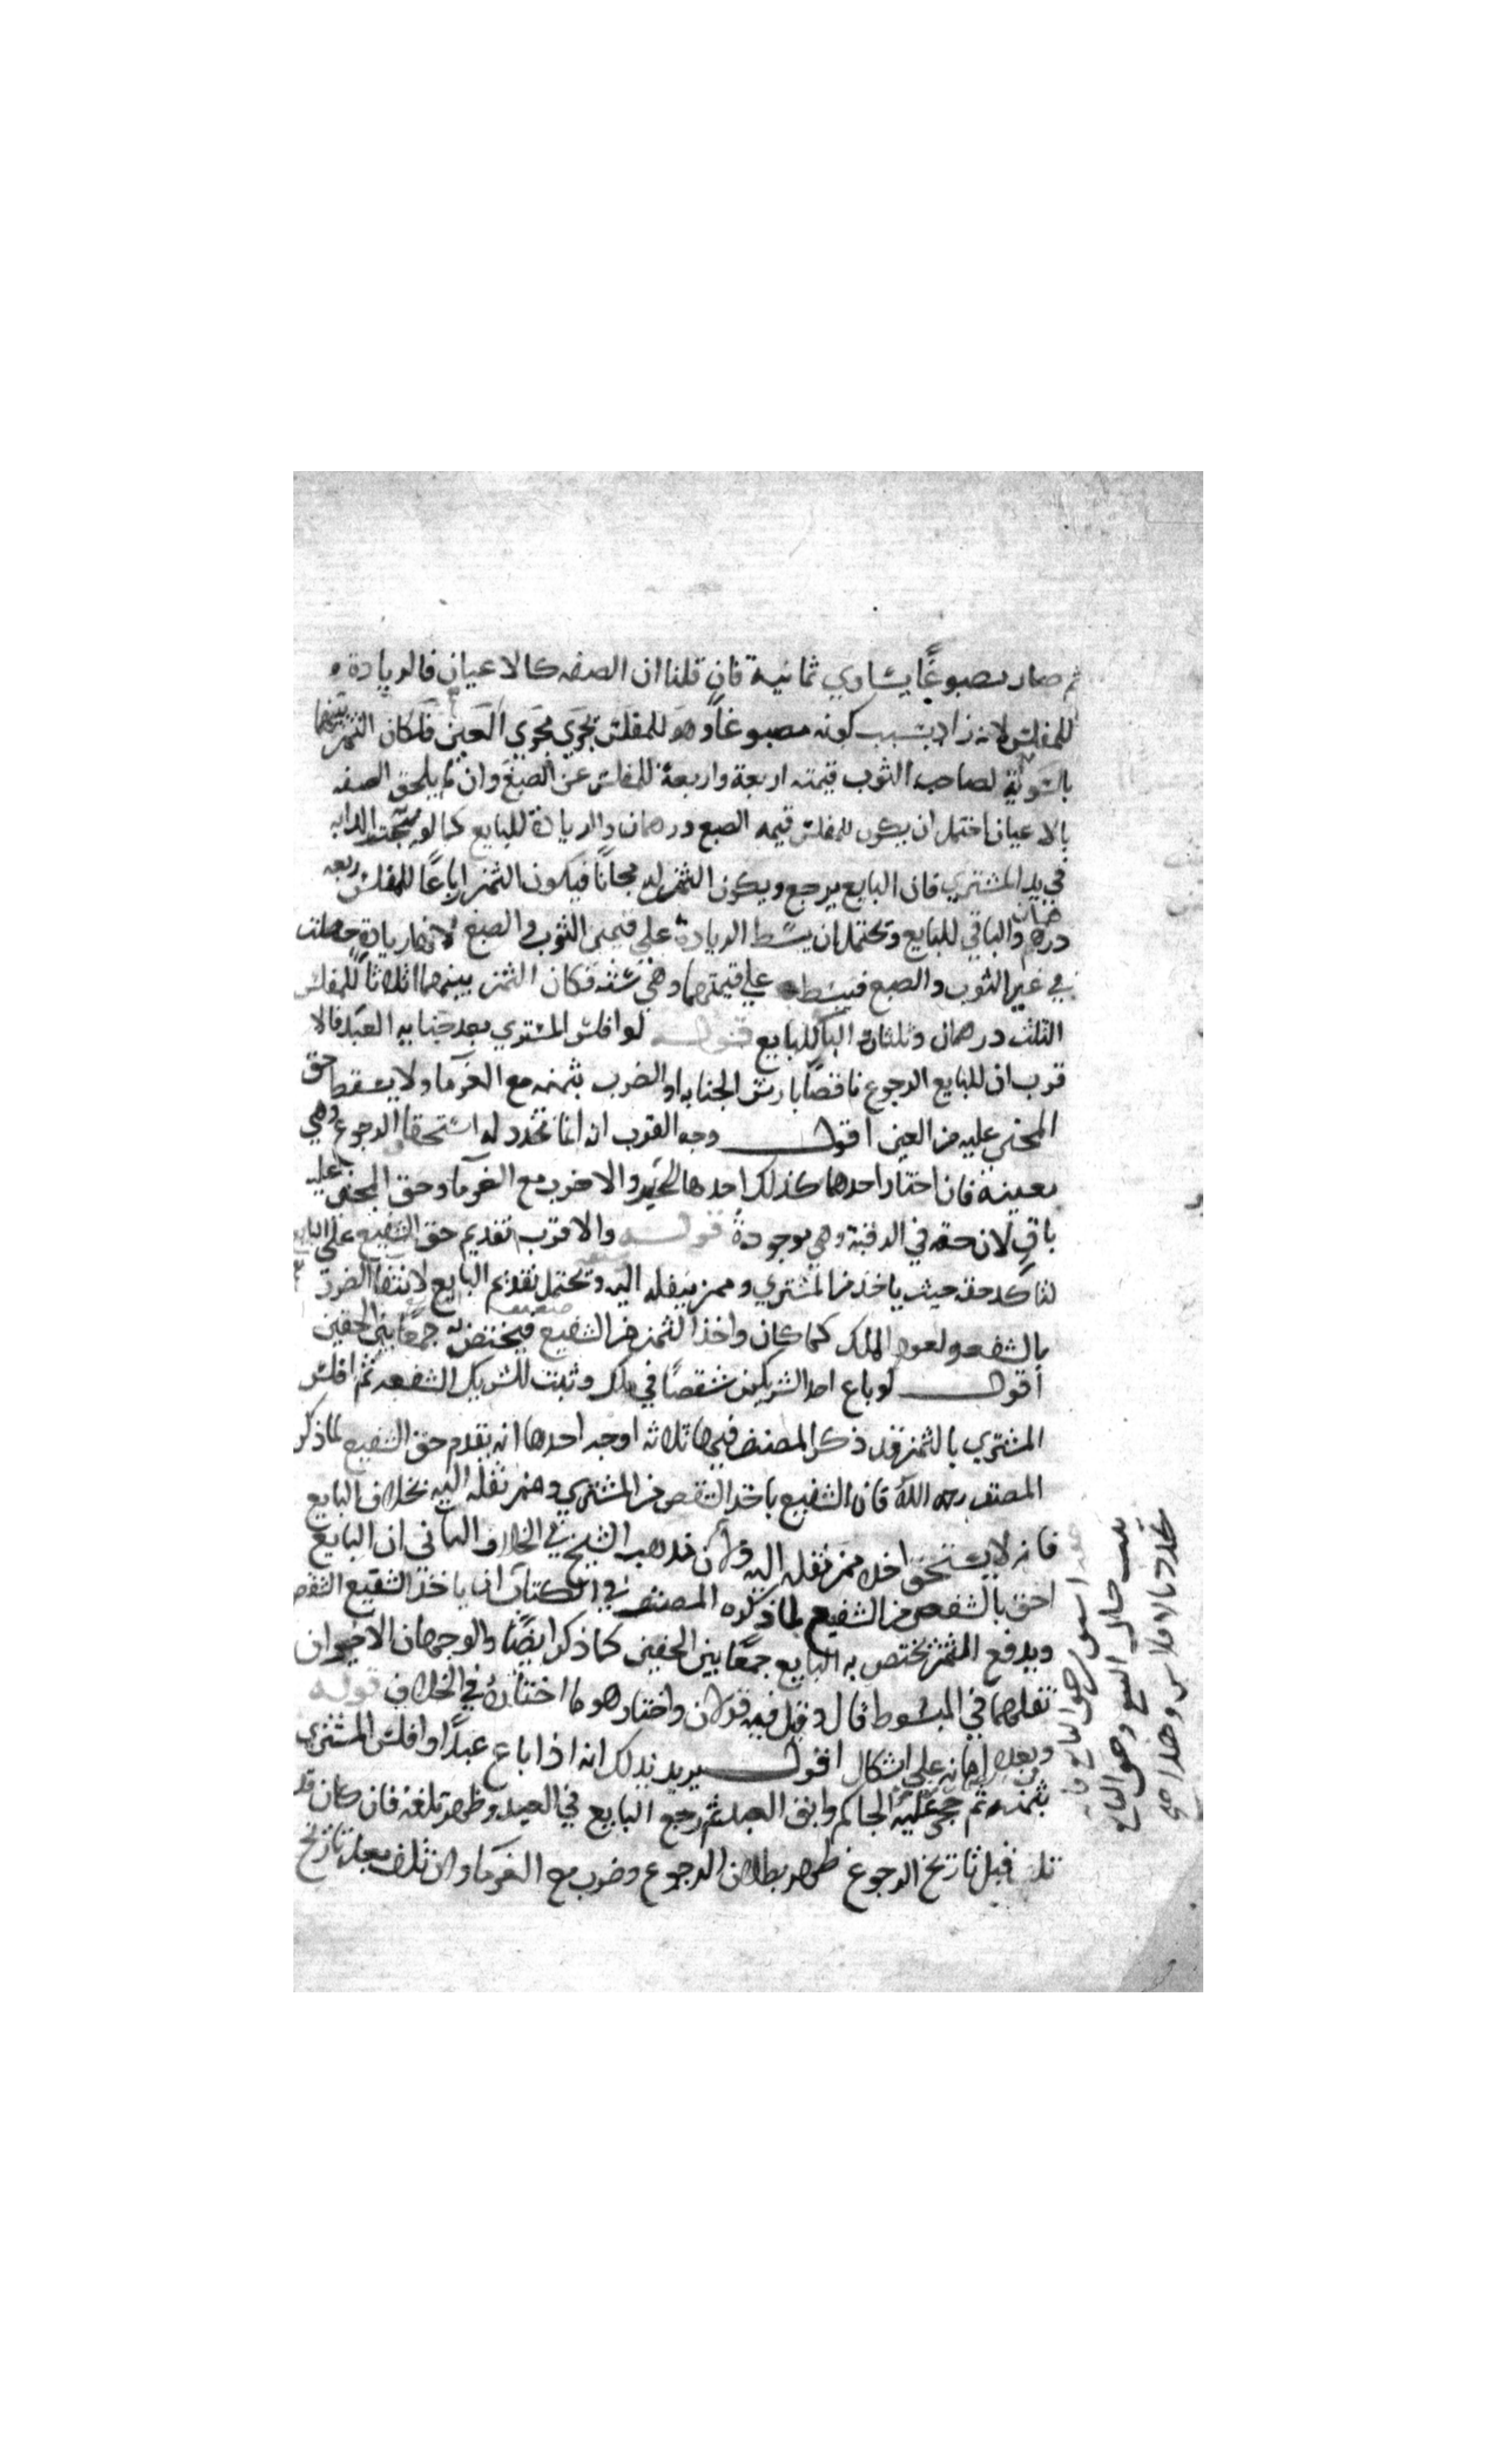 ثم صار مصبوغًا يساوي ثمانية فان قلنا ان الصفه كالاعيان فالزيادة
للمفلس لانه زاد بسبب كونه مصبوغا وهو للمفلس يجري مجري العين فكان الثمن بينهما
بالسوية لصاحب الثوب قيمته اربعة واربعة للمفلس عن الصبغ وان لم يلحق الصفه
بالاعيان احتمل ان يكون للمفلس قيمه الصبغ درهمان والزيادة للبايع كما لو سمنت الدابه
في يد المشتري فان البايع يرجع ويكون الثمن له مجانًا فيكون الثمن ارباعًا للمفلس ربعه
درهمان والباقي للبايع ويحتمل ان يبسط الزيادة علي قيمتي الثوب والصبغ لانها زيادة حصلت
في غير الثوب والصبغ فيبسط علي قيمتهما وهي ستة فكان الثمن بينهما اثلاثا للمفلس
الثلث درهمان وثلثان للبايع قوله لو افلس المشتري بعد جنايه العبد فالا
قرب ان للبايع الرجوع ناقصًا بارش الجنايه او الضرب بثمنه مع الغرما ولا يسقط حق
المجني عليه من العين اقول وجه القرب انه انما تجدد له استحقاق الرجوع وهي
معينة فان اختار احدهما كذلك احدها والا ضرب مع الغرما وحق المجني عليه
باقٍ لان حقه في الرقبة وهي موجودة قوله والاقرب تقديم حق الشفيع علي البايع
لتاكد حقه حيث ياخذ من المشتري وممن ينقله اليه ويحتمل تقديم البايع لانتفا الضرر
بالشفعه ولعود الملك كما كان واخذ الثمن من الشفيع فيختص به جمعًا بين الحقين
اقول لو باع احد الشريكين شقصًا في ملك وثبت للشريك الشفعه ثم افلس
المشتري بالثمن فقد ذكر المصنف فيها ثلاثه اوجه احدها انه يقدم حق الشفيع لما ذكر
المصنف رحمه الله فان الشفيع ياخذ الشقص من المشتري وممن نقله اليه بخلاف البايع
فانه لا يستحق اخذه ممن نقله اليه ولان مذهب الشيخ في الخلاف الثاني ان البايع
احق بالشقص من الشفيع لما ذكره المصنف في الكتاب ان ياخذ الشفيع الشقص
ويدفع الثمن يختص به البايع جمعًا بين الحقين كما ذكر ايضًا والوجهان الاخيران
نقلهما في المبسوط قال وقيل فيه قولان واختار هو ما اختاره في الخلاف قوله
وبعد اباقه علي اشكال اقول يريد بذلك انه اذا باع عبدًا وافلس المشتري
بثمنه ثم حجر عليه الحاكم وابق العبد ثم رجع البايع في العبد وظهر تلفه فان كان قد
تلف قبل تاريخ الرجوع ظهر بطلان الرجوع وضرب مع الغرما وان تلف بعد تاريخ